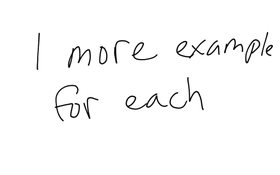 1 more example
for each